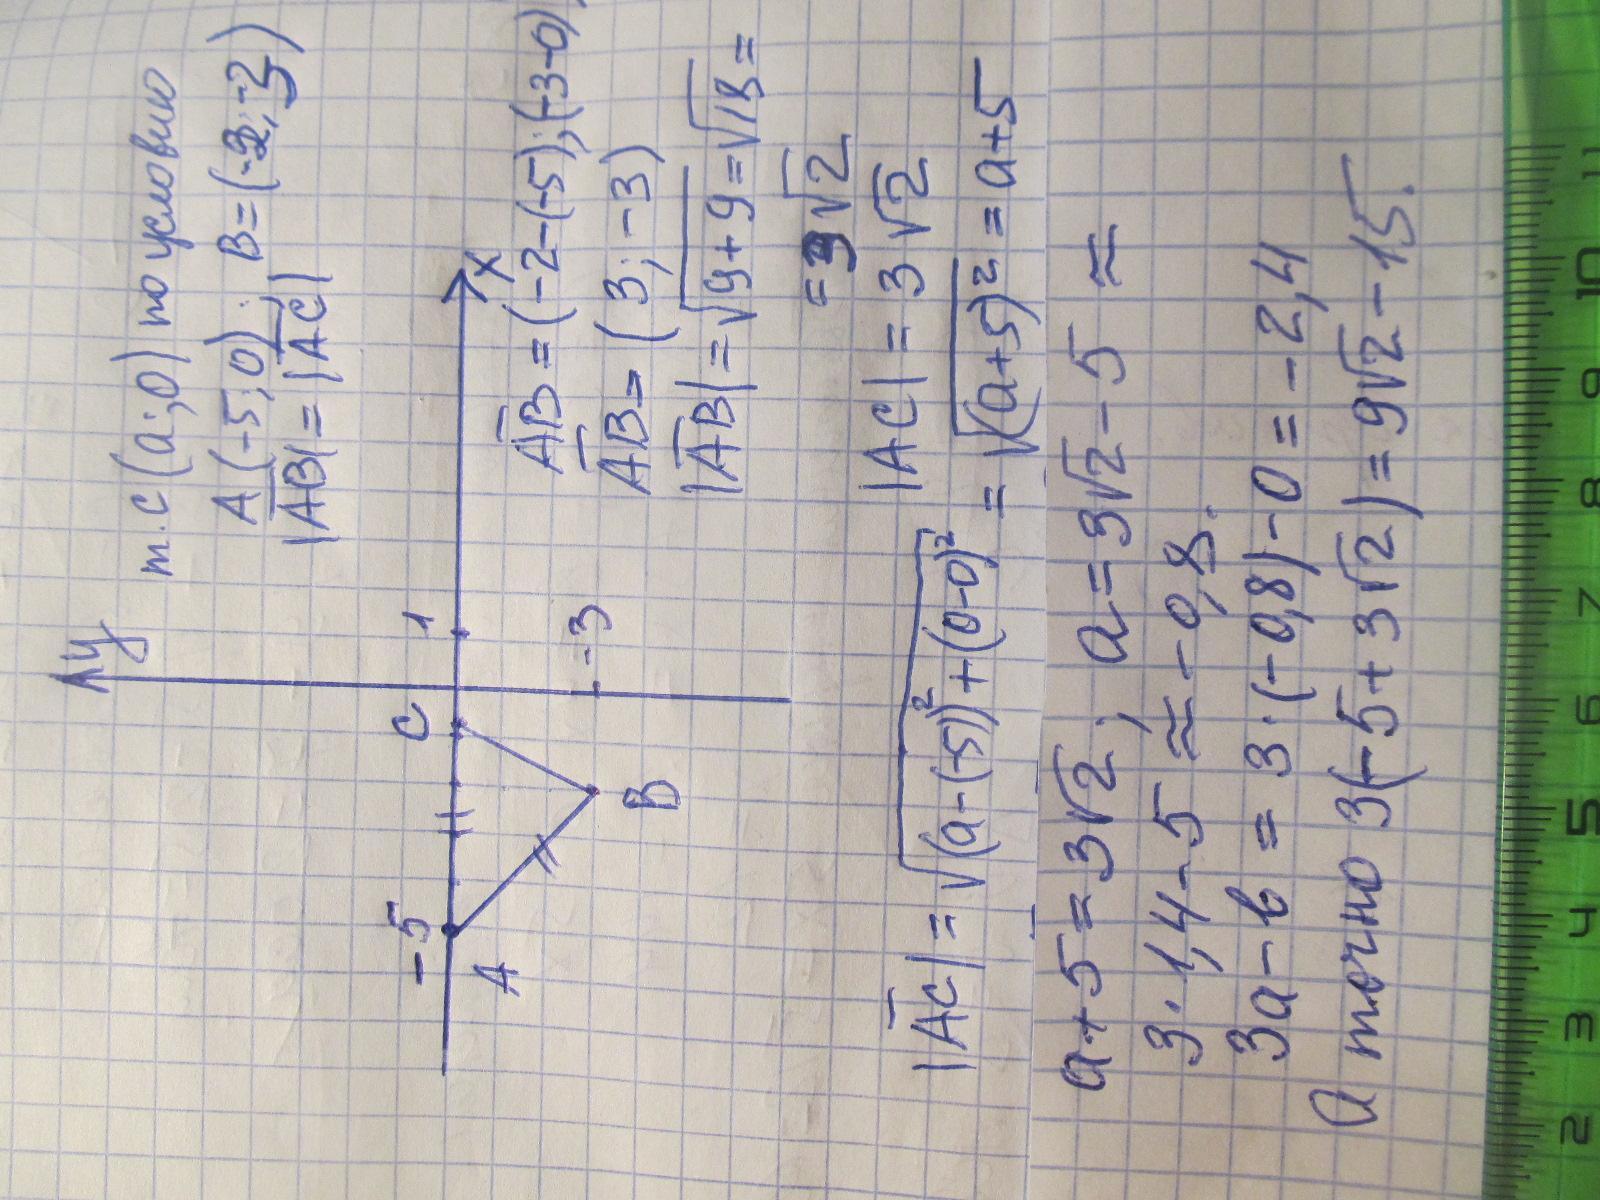 т. С (a; 0) по условию
A (-5; 0); B = (-2; -2)
|AB| = |AC|
y
1
X
C
-5
A
B
-3
AB = (-2-(-5); (-3-0)
AB = (3; -3)
|AB| = √9+9 = √18 =
= 3√2
|AC| = 3√2
|AC| = √(a-(-5))² + (0-0)² = √(a+5)² = a+5
a+5 = 3√2; a = 3√2 - 5 ≈
3·1,4-5 ≈ -0,8.
3a - b = 3·(-0,8) - 0 = -2,4
а точно 3(-5+3√2) = 9√2 - 15.
2 3 4 5 6 7 8 9 10 11